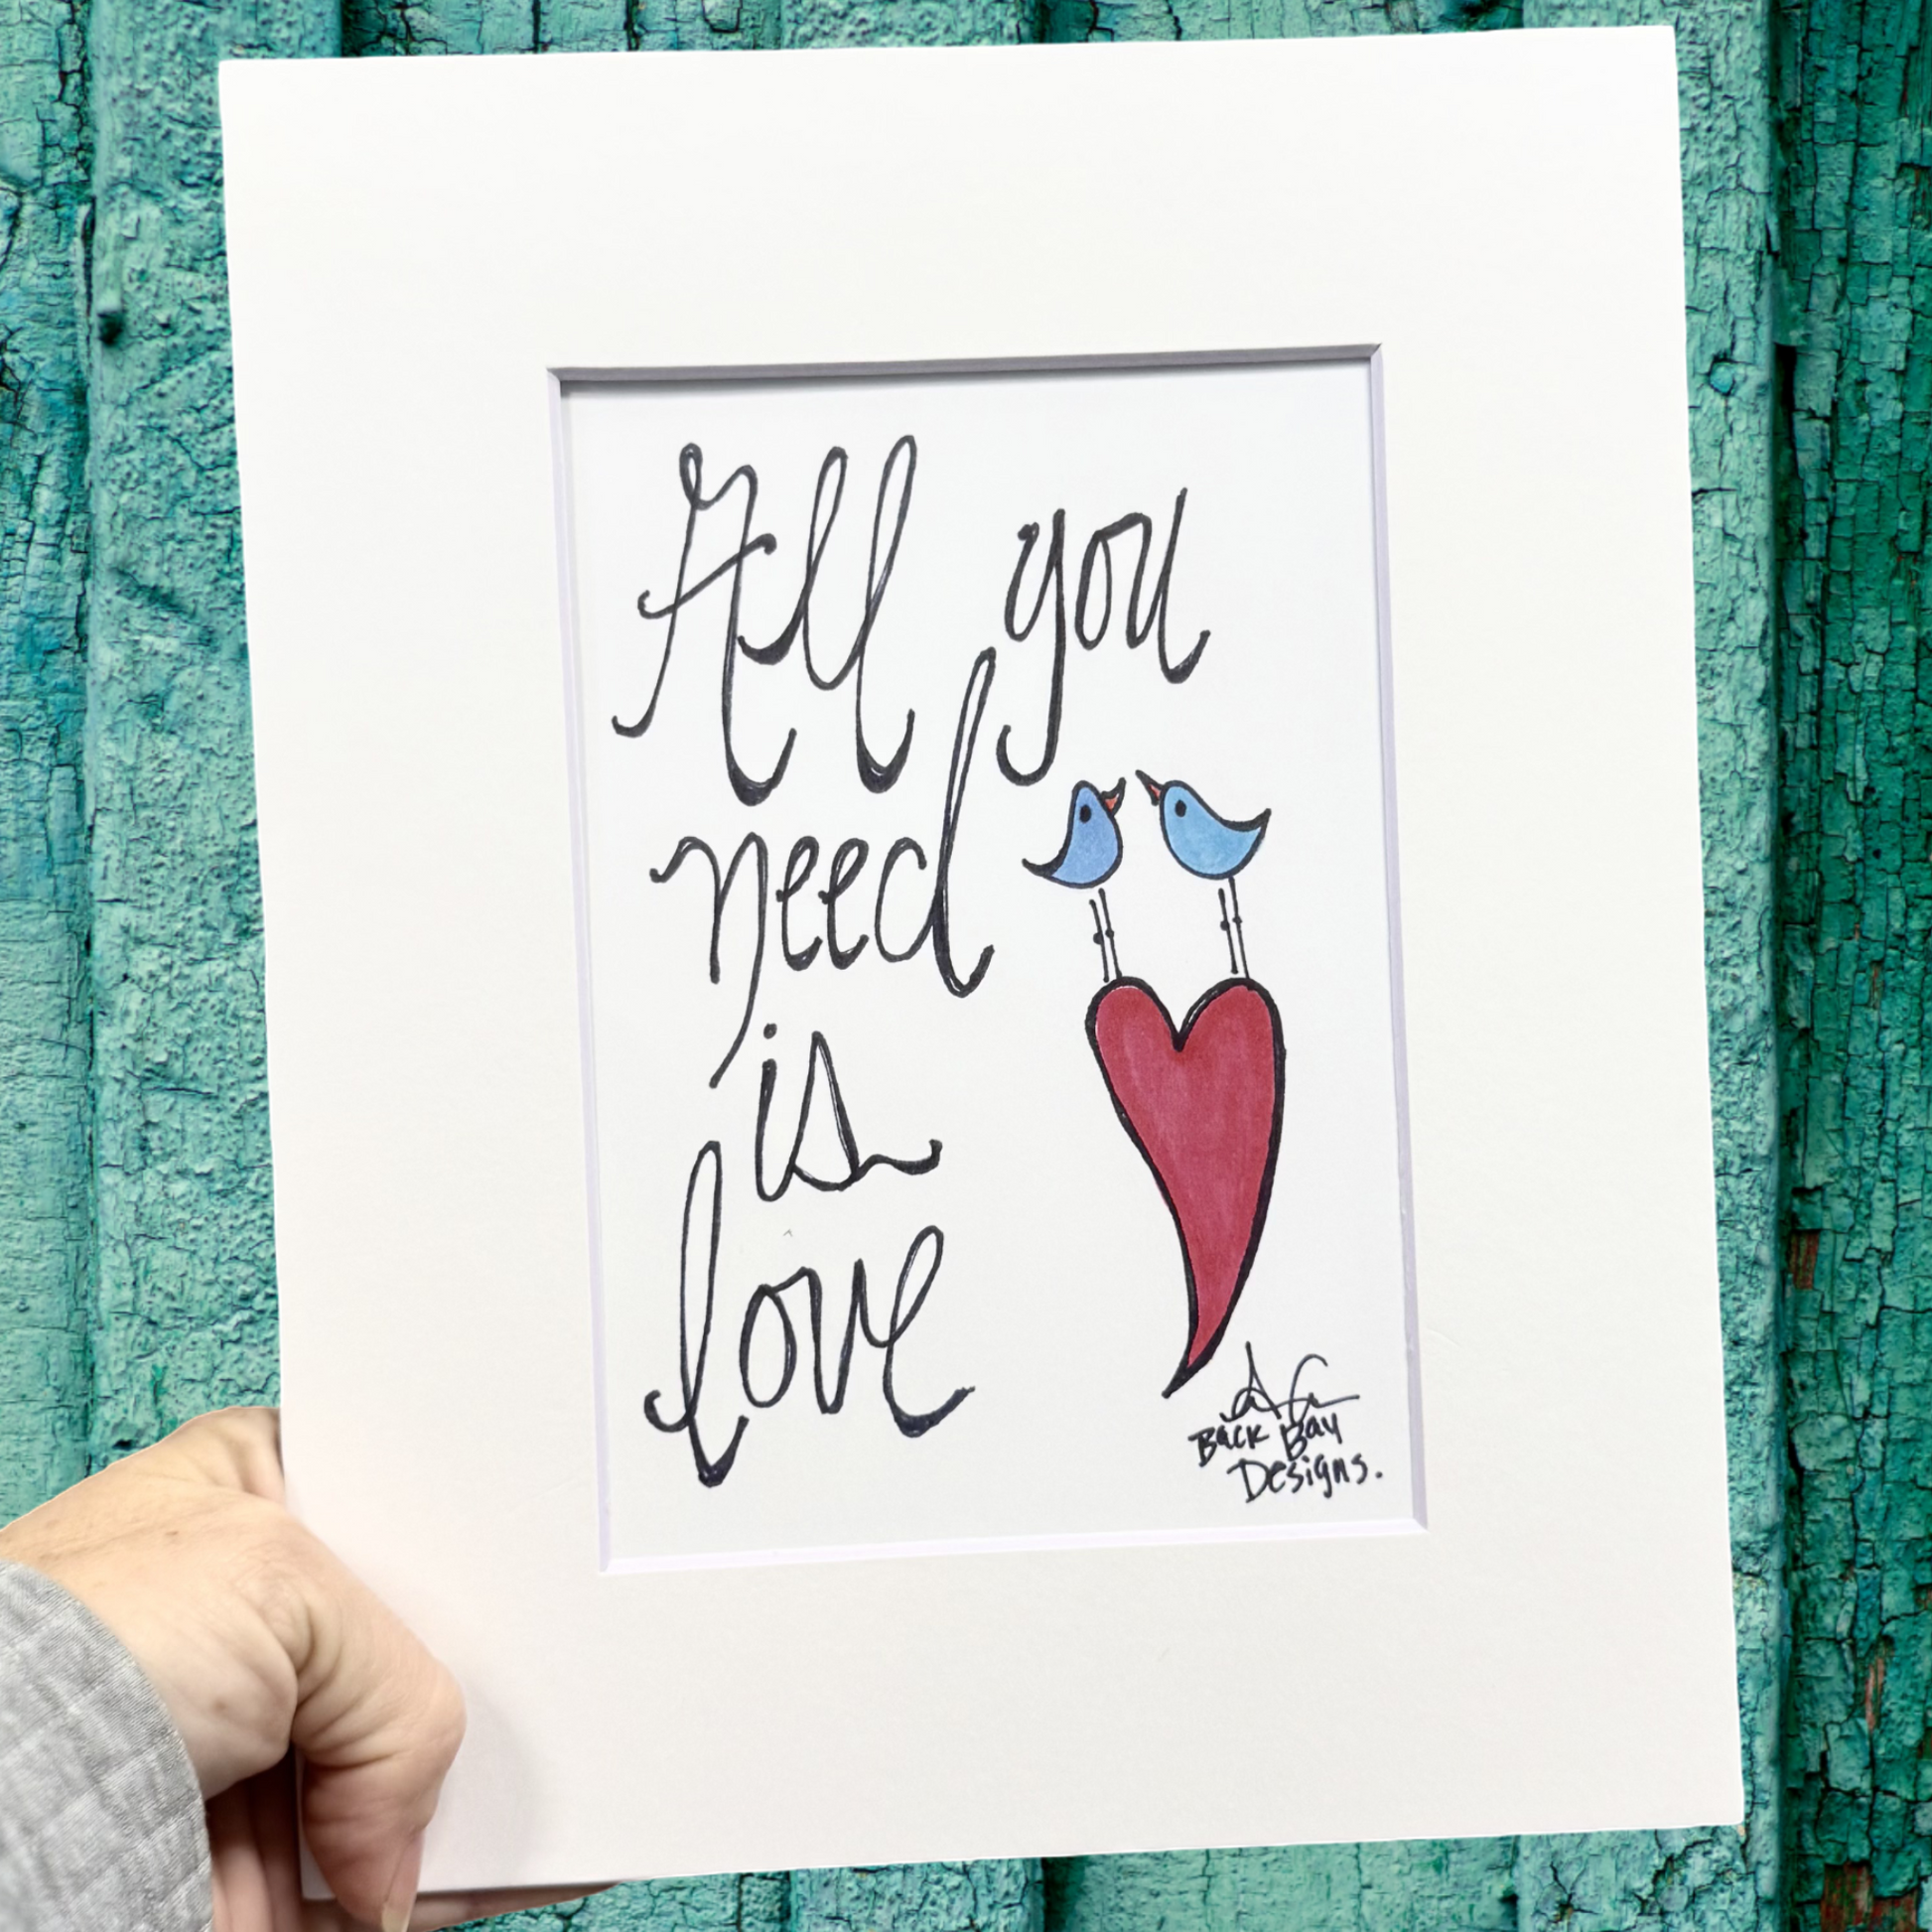 All you
need
is
love
Back Bay
Designs.